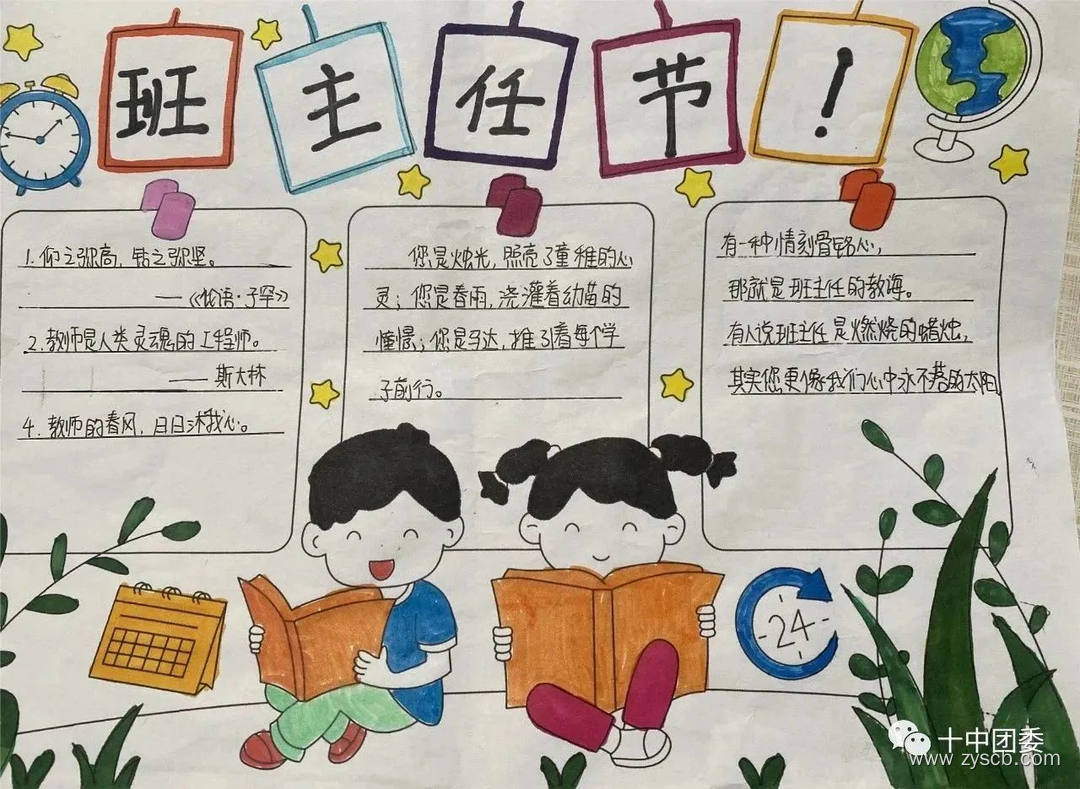 班主任节!
1.仰之弥高,钻之弥坚。
——《论语·子罕》
2.教师是人类灵魂的工程师。
——斯大林
4.教师的春风,日日沐我心。
您是烛光,照亮了童稚的心
灵;您是春雨,浇灌着幼苗的
憧憬;您是马达,推引着每个学
子前行。
有一种情刻骨铭心,
那就是班主任的教诲。
有人说班主任是燃烧的蜡烛,
其实您更像我们心中永不落的太阳
24
十中团委
www.zyscb.com